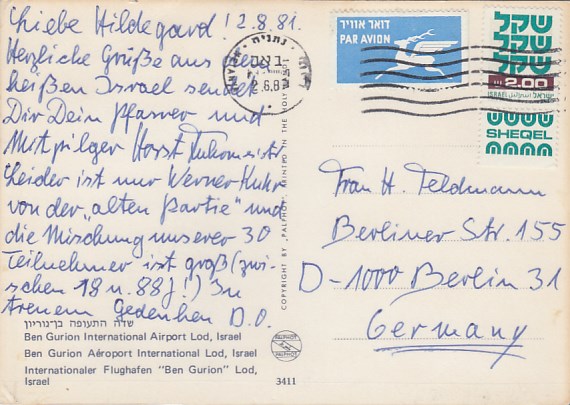 Liebe Hildegard! 12.8.81.
Herzliche Grüße aus dem
heißen Israel sendet
Dir Dein Pfarrer und
Mitpilger Horst
Leider ist nur Werner
von der „alten Partie" und
die Mischung unserer 30
Teilnehmer ist groß (zwi-
schen 18 u. 88 J!) In
treuem Gedenken D.O.
שדה התעופה בן־גוריון
Ben Gurion International Airport Lod, Israel
Ben Gurion Aéroport International Lod, Israel
Internationaler Flughafen "Ben Gurion" Lod,
Israel
3411
PALPHOT
COPYRIGHT BY "PALPHOT" PRINTED IN THE HOLY LAND
דואר אוויר
PAR AVION
נתניה
NETANYA
שקל
שקל
שקל
2.00
ISRAEL اسرائيل ישראל
SHEQEL
Frau H. Feldmann
Berliner Str. 155
D-1000 Berlin 31
Germany